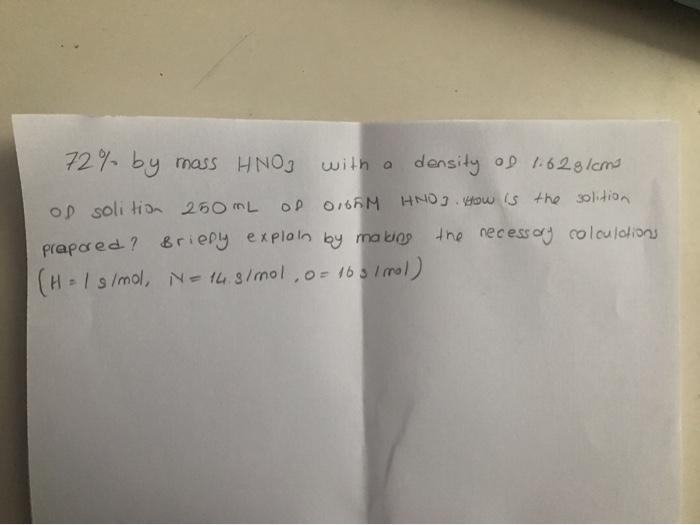 72% by mass HNO3 with a density of 1.62g/cm3
of solition 250 mL of 0,65M HNO3. How is the solition
prepared? Briefly explain by making the necessary calculations
(H = 1 g/mol, N = 14 g/mol, O = 16 g/mol)